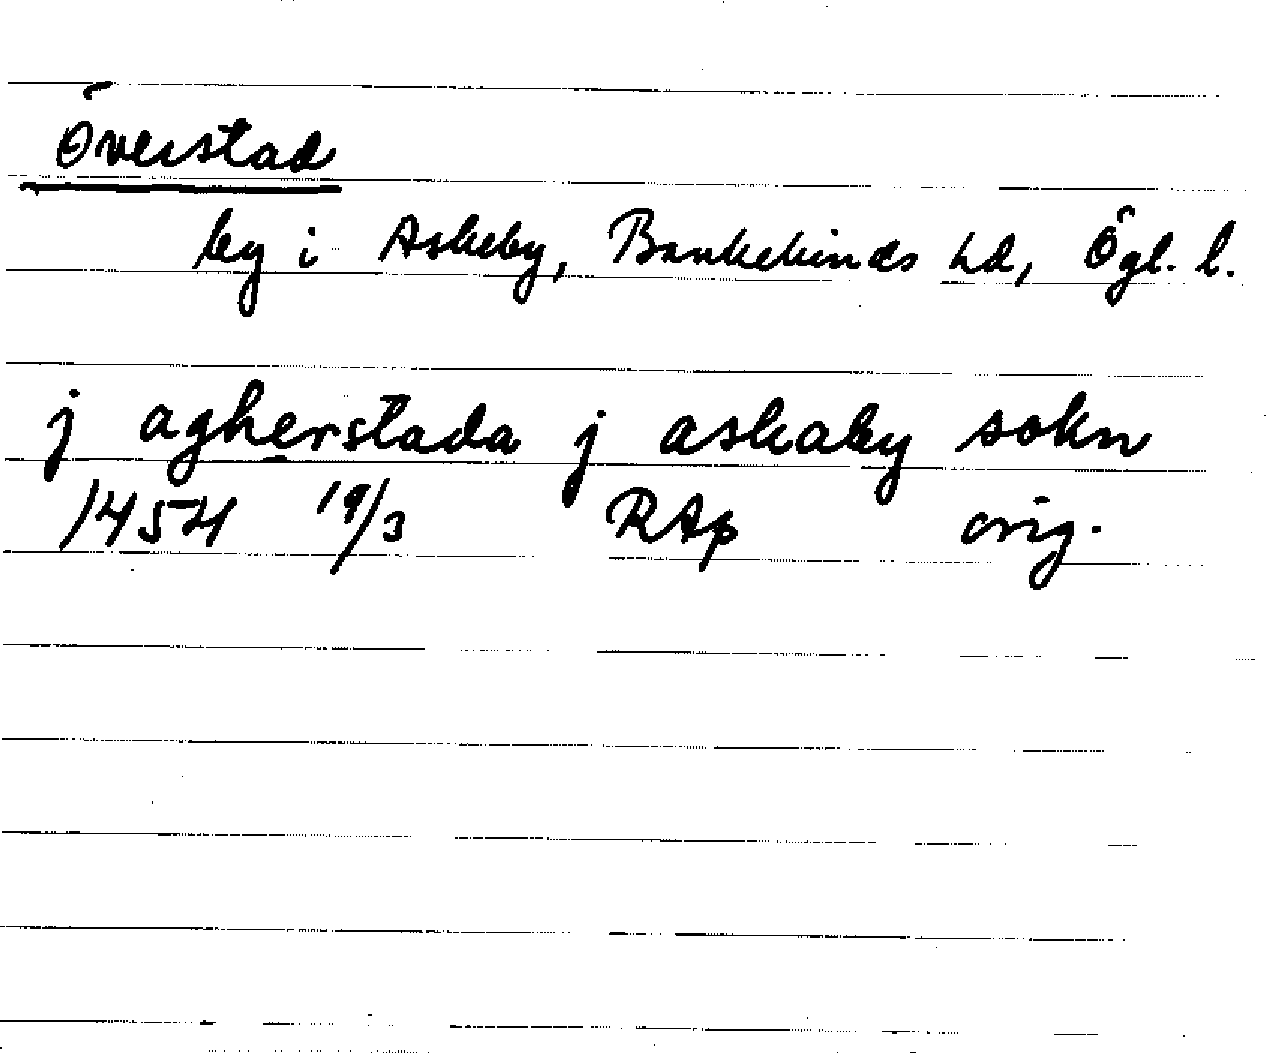 Överstad
by i Askeby, Bankekinds hd, Ögl. l.
j agherstada j askaby sokn
1454 19/3 RAp orig.